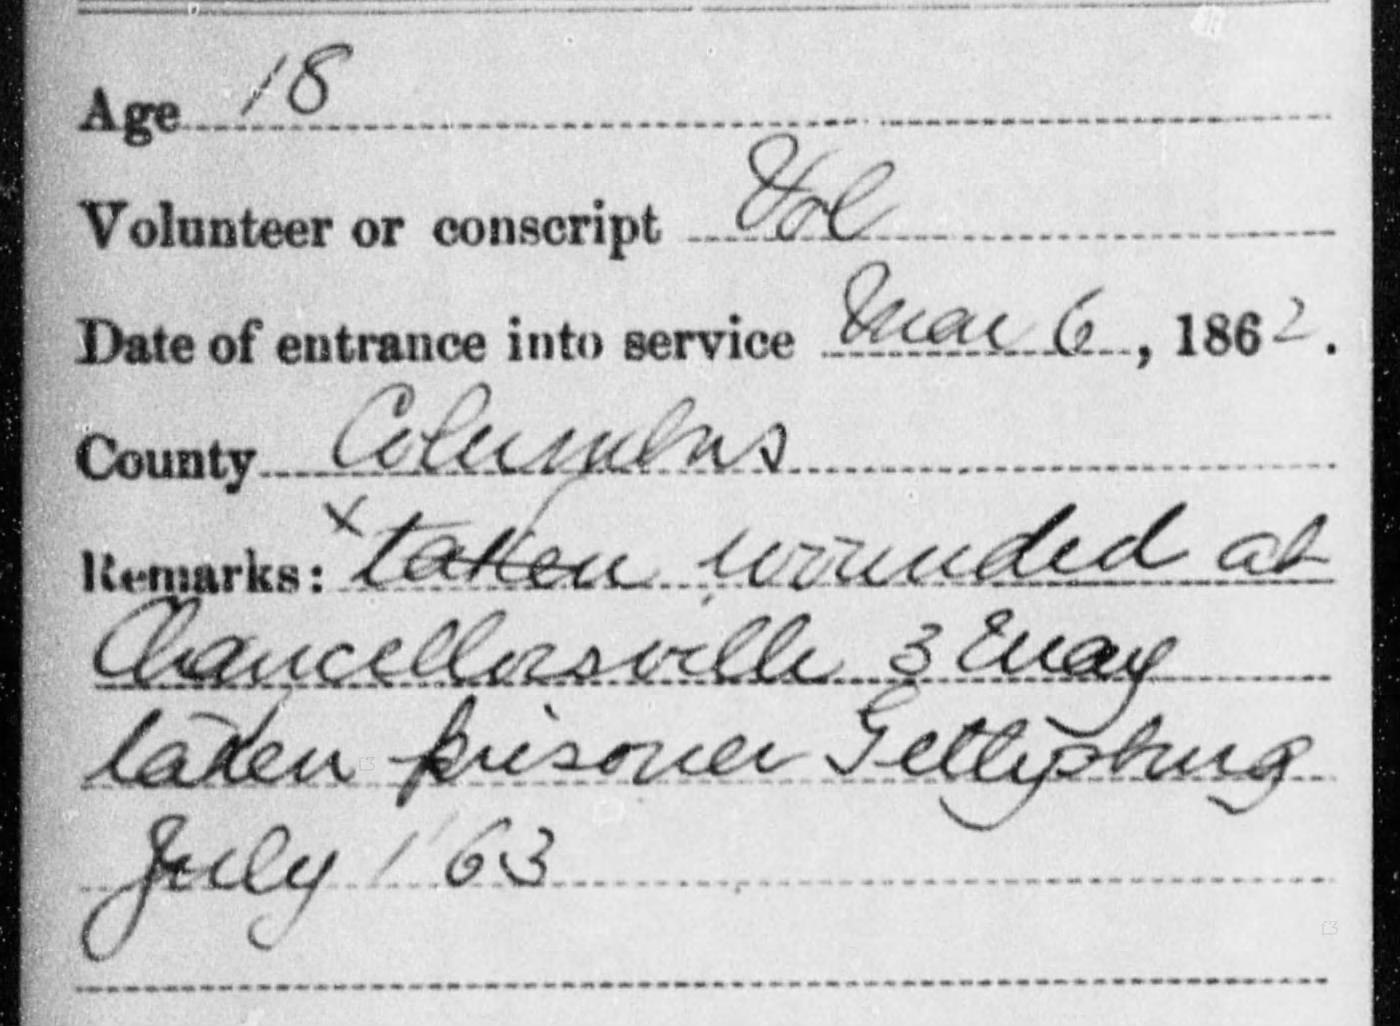 Age 18
Volunteer or conscript Vol
Date of entrance into service Mar 6, 1862.
County Columbus
Remarks: x taken wounded at
Chancellorsville 3 May
taken prisoner Gettysburg
July 1 '63